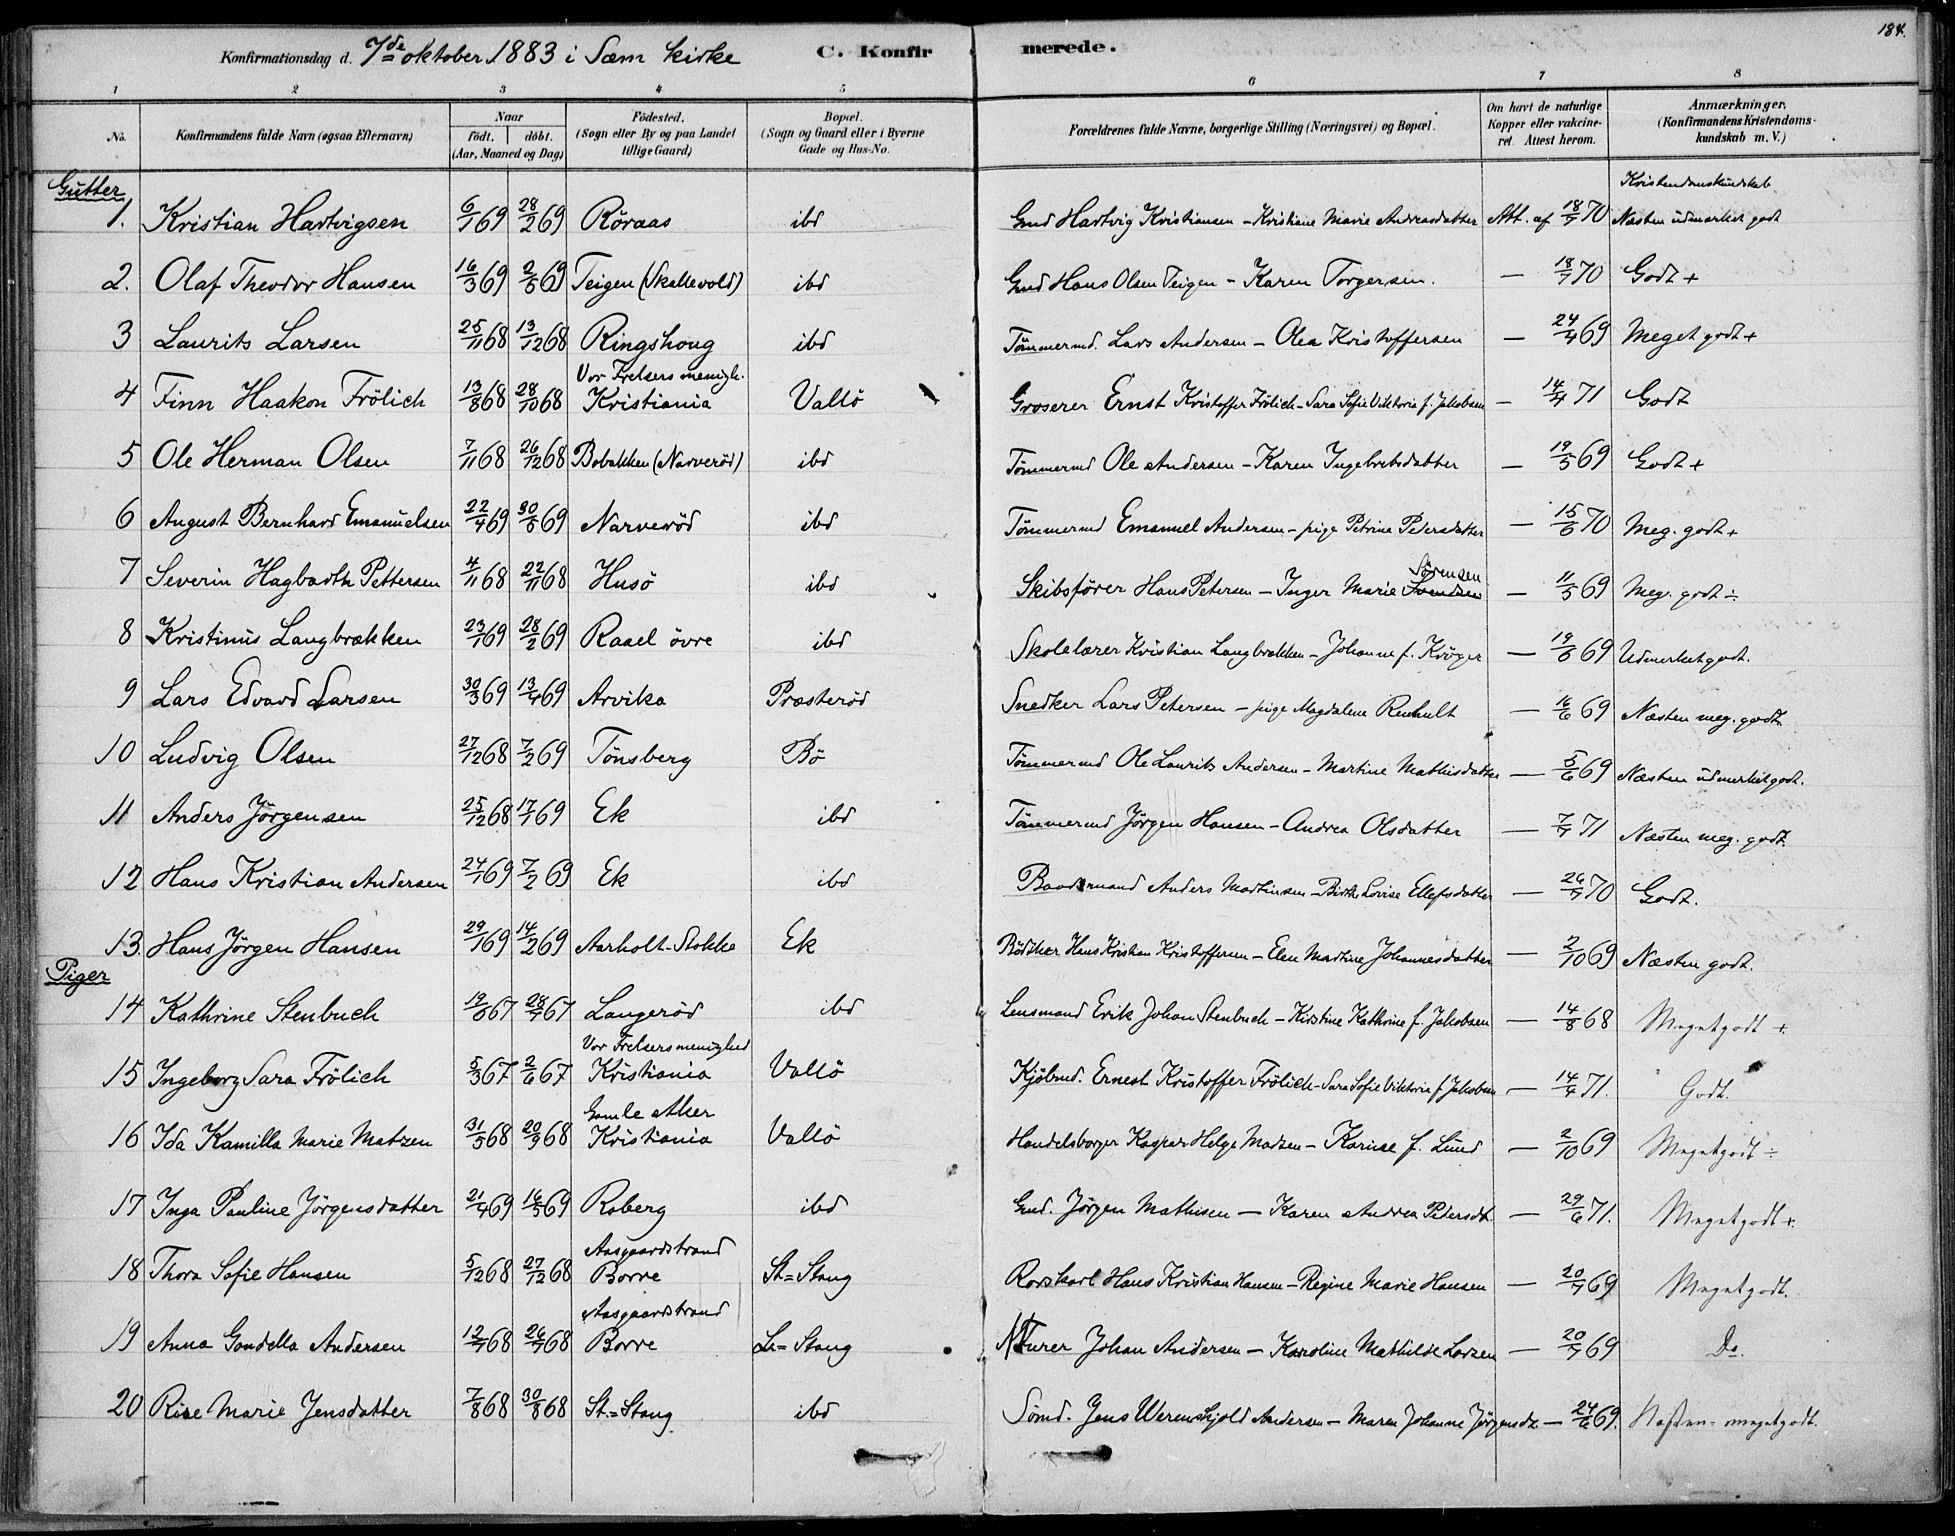 184.
Konfirmationsdag d. 7de oktober 1883 i Sæm kirke C. Konfirmerede.
1 2 3 4 5 6 7 8
No. Konfirmandens fulde Navn (ogsaa Efternavn) Naar født. døbt. (Aar, Maaned og Dag) Fødested. (Sogn eller By og paa Landet tillige Gaard) Bopæl. (Sogn og Gaard eller i Byerne Gade og Hus-No. Forældrenes fulde Navne, borgerlige Stilling (Næringsvei) og Bopæl. Om havt de naturlige Kopper eller vakcineret. Attest herom. Anmærkninger. (Konfirmandens Kristendomskundskab m. V.)
Gutter Kristendomskundskab
1. Kristian Hartvigsen 6/1 69 28/2 69 Röraas ibd Gmd Hartvig Kristiansen - Kristiane Marie Andreasdatter Att. af 18/7 70 Næsten udmærket godt
2. Olaf Theodor Hansen 16/3 69 2/5 69 Teigen (Skallevold) ibd Gmd Hans Olsen Teigen - Karen Torgersen. — 18/7 70 Godt +
3 Laurits Larsen 25/11 68 13/12 68 Ringshoug ibd Tömmermd. Lars Andersen - Olea Kristoffersen — 24/4 69 Meget godt +
4 Finn Haakon Frölich 13/8 68 28/10 68 Vor Frelsers menigh. Kristiania Vallö Groserer Ernst Kristoffer Frölich - Sara Sofie Viktoria f. Jakobsen — 14/4 71 Godt
5 Ole Herman Olsen 7/11 68 26/12 68 Bobakken (Narveröd) ibd Tömmermd Ole Andersen - Karen Ingebretsdatter — 19/5 69 Godt +
6 August Bernhard Emanuelsen 22/4 69 30/5 69 Narveröd ibd Tömmermd Emanuel Andersen - pige Petrine Pedersdatter — 15/6 70 Meg. godt +
7 Severin Hagbarth Pettersen 4/11 68 22/11 68 Husö ibd Skibsförer Hans Petersen - Inger Marie Svendsen Sørensen — 11/5 69 Meg. godt ÷
8 Kristinus Langbrækken 23/1 69 28/2 69 Raael övre ibd Skolelærer Kristian Langbrækken - Johanne f. Kröger — 19/6 69 Udmerket godt.
9 Lars Edvard Larsen 30/3 69 13/4 69 Arvika Præsteröd Snedker Lars Petersen - pige Magdalene Renhult — 16/6 69 Næsten meg. godt.
10 Ludvig Olsen 27/12 68 7/2 69 Tönsberg Bö Tömmermd Ole Laurits Andersen - Martine Mathisdatter — 5/6 69 Næsten udmerket godt.
11 Anders Jörgensen 25/12 68 17/1 69 Ek ibd Tömmermd Jörgen Hansen - Andrea Olsdatter — 7/7 71 Næsten meg. godt.
12 Hans Kristian Andersen 24/1 69 7/2 69 Ek ibd Baadsmand Anders Martinsen - Birthe Lovise Ellefsdatter — 26/7 70 Godt.
13. Hans Jörgen Hansen 29/1 69 14/2 69 Aarholt - Stokke Ek Bödtker Hans Kristian Kristoffersen - Elen Martine Johannesdatter — 2/10 69 Næsten godt.
Piger
14 Kathrine Stenbuch 19/6 67 28/7 67 Langeröd ibd Lensmand Erik Johan Stenbuch - Kristine Kathrine f. Jakobsen — 14/8 68 Megetgodt +
15 Ingeborg Sara Frölich 5/3 67 2/6 67 Vor Frelsers menighed Kristiania Vallö Kjöbmd. Ernest Kristoffer Frölich - Sara Sofie Viktoria f Jakobsen — 14/4 71. Godt.
16 Ida Kamilla Marie Matzen 31/5 68 20/9 68 Gamle Aker Kristiania Vallö Handelsborger Kaspar Helge Madzen - Karine f. Lund — 2/10 69 Megetgodt ÷
17 Inga Pauline Jörgensdatter 21/4 69 16/5 69 Roberg ibd Gmd. Jörgen Mathisen — Karen Andrea Pedersdt. — 29/6 71. Megetgodt +
18 Thora Sofie Hansen 5/12 68 27/12 68 Aasgaardstrand Borre St = Stang Rorskarl Hans Kristian Hansen - Regine Marie Hansen — 20/7 69 Megetgodt.
19 Anna Gondella Andersen 12/7 68 26/7 68 Aasgaardstrand Borre L = Stang Murer Johan Andersen — Karoline Mathilde Larsen — 20/7 69 Do.
20 Rise Marie Jensdatter 7/8 68 30/8 68 St. = Stang ibd Sömd. Jens Werenskjold Andersen - Maren Johanne Jörgensdt. — 24/6 69. Næsten - megetgodt.